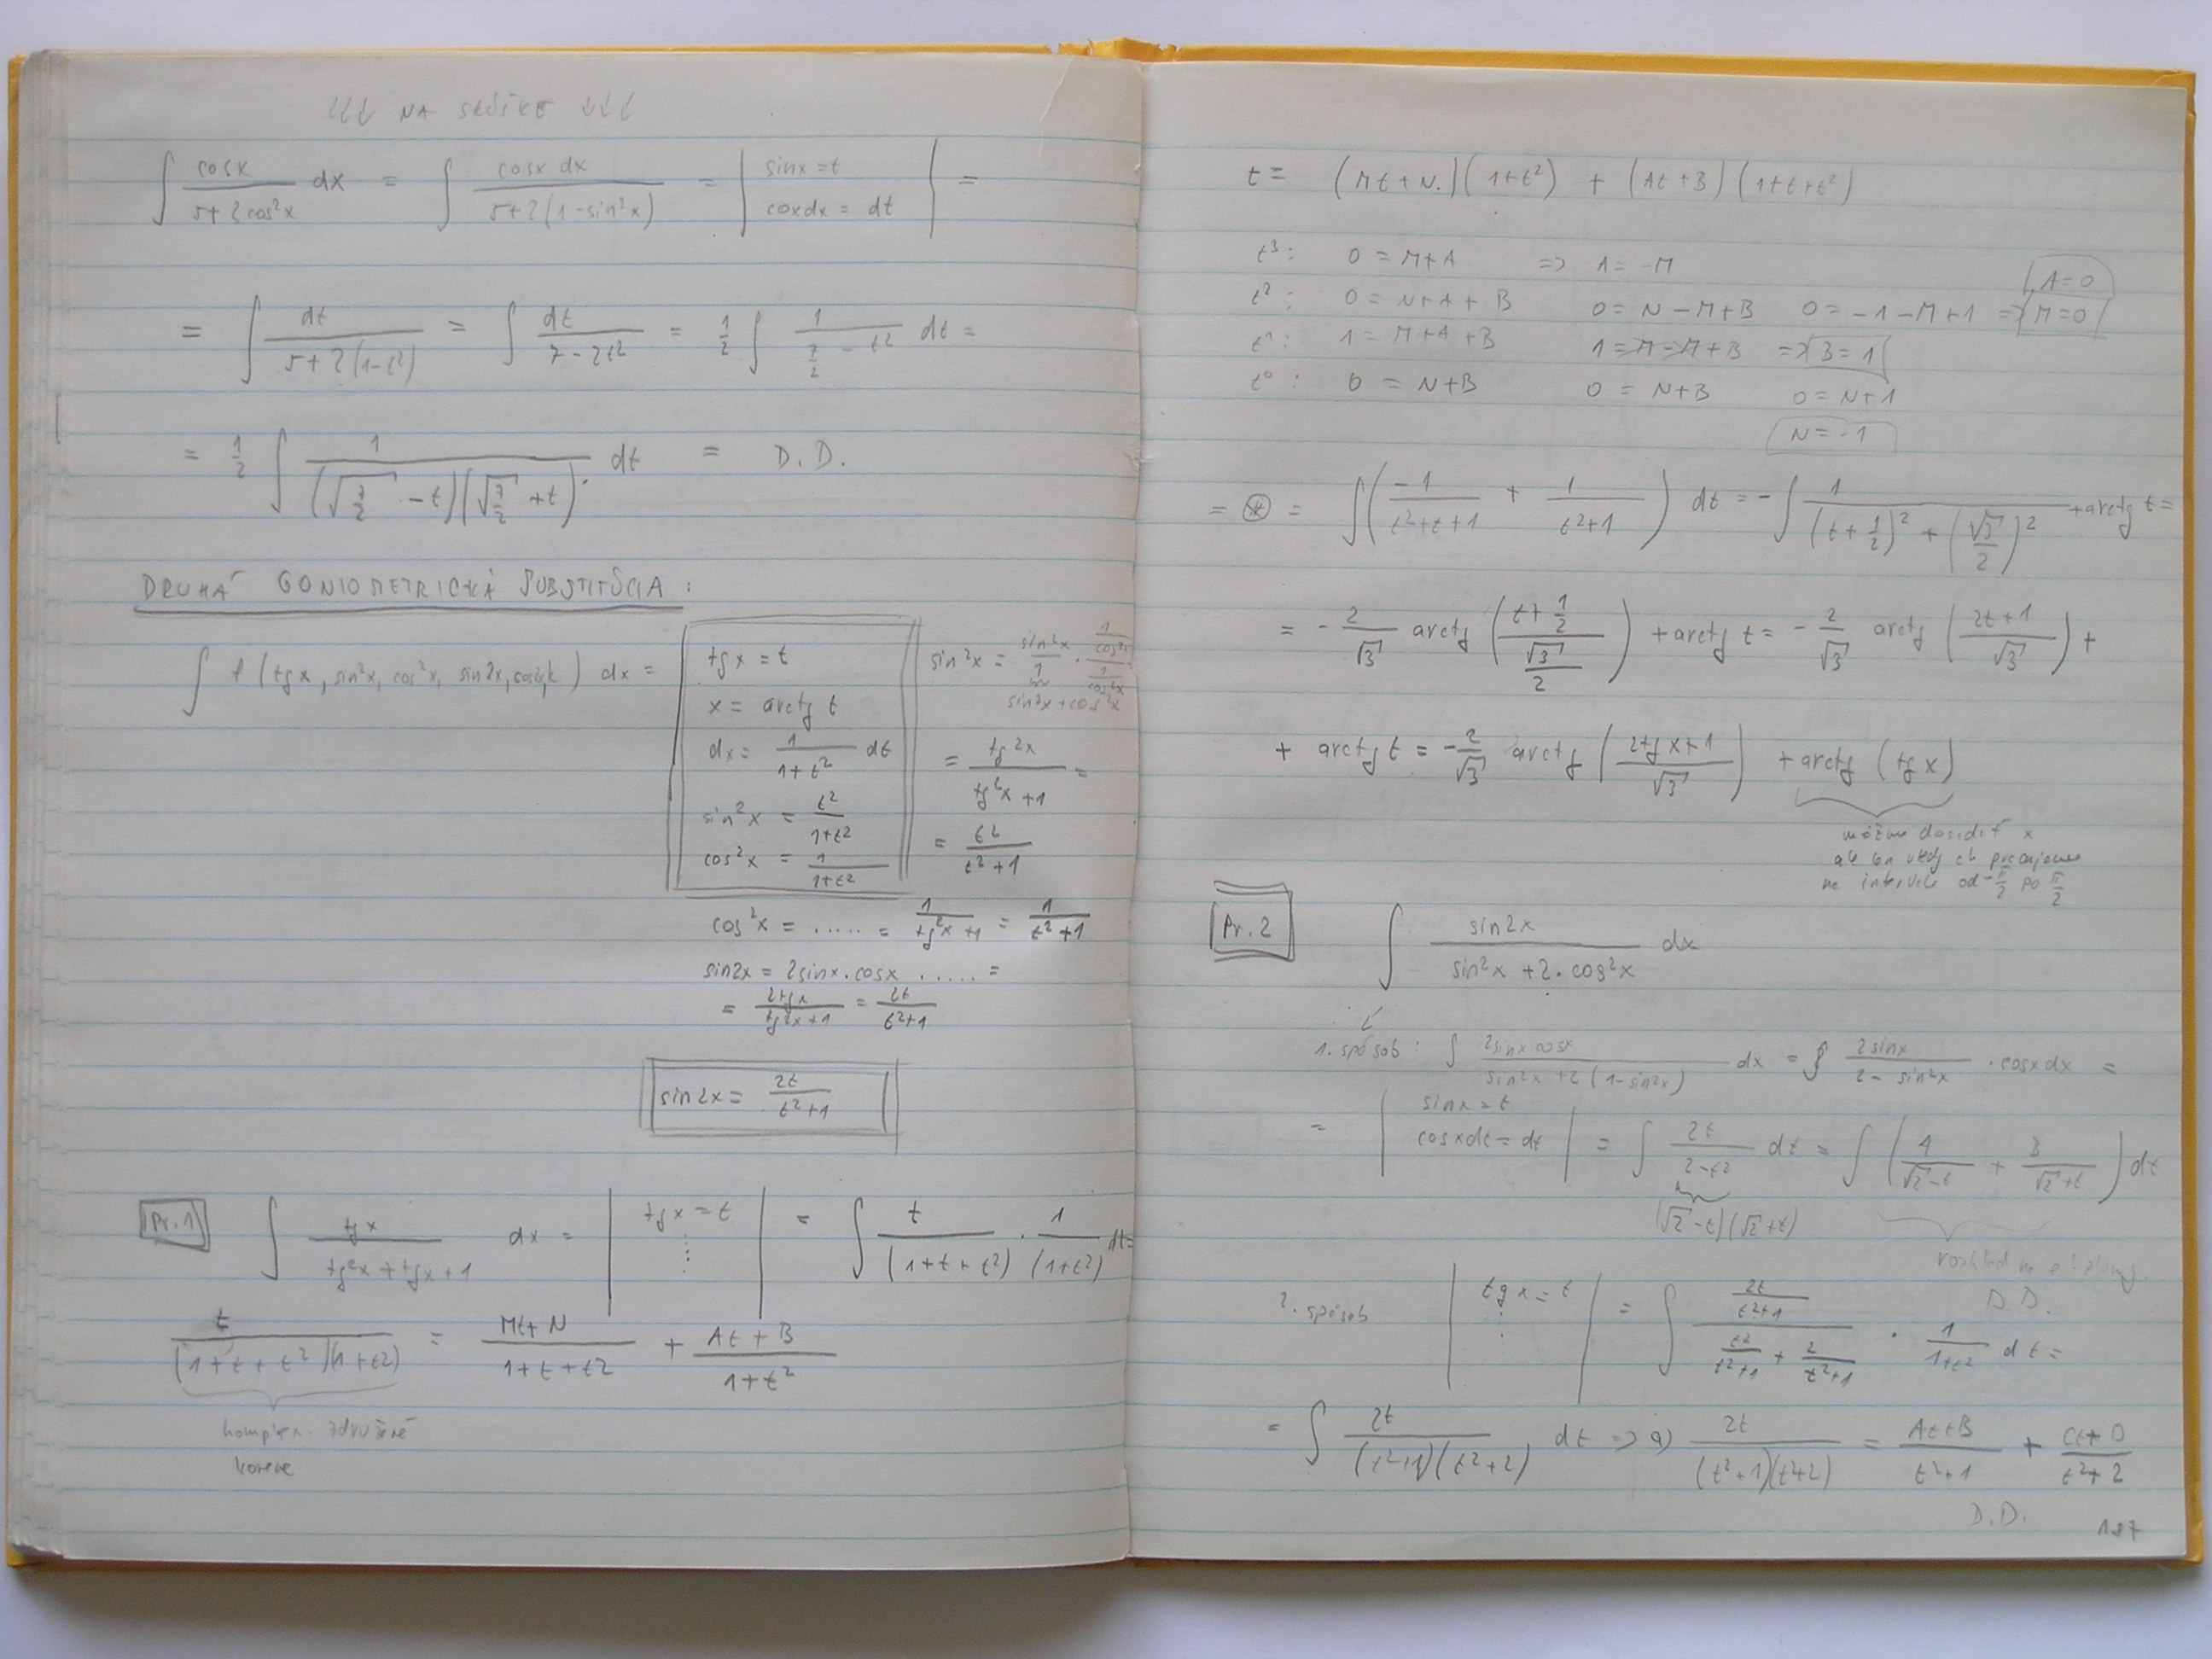 ↓↓↓ NA SKÚŠKE ↓↓↓
∫ cosx / (5+2cos²x) dx = ∫ cosx dx / (5+2(1-sin²x)) = | sinx = t
coxdx = dt | =
= ∫ dt / (5+2(1-t²)) = ∫ dt / (7-2t²) = 1/2 ∫ 1 / (7/2 - t²) dt =
= 1/2 ∫ 1 / ((√7/2 - t)(√7/2 + t)) dt = D.D.
DRUHÁ GONIOMETRICKÁ SUBSTITÚCIA:
∫ f (tgx, sin²x, cos²x, sin2x, cos2x) dx =
tgx = t
x = arctg t
dx = 1/(1+t²) dt
sin²x = t²/(1+t²)
cos²x = 1/(1+t²)
sin²x = sin²x/1 · (1/cos²x)/(1/cos²x)
sin²x + cos²x
= tg²x / (tg²x + 1) =
= t² / (t²+1)
cos²x = ..... = 1/(tg²x+1) = 1/(t²+1)
sin2x = 2sinx.cosx ..... =
= 2tgx/(tg²x+1) = 2t/(t²+1)
sin2x = 2t/(t²+1)
Pr.1 ∫ tgx / (tg²x + tgx + 1) dx = | tgx = t ⋮ | = ∫ t/(1+t+t²) · 1/(1+t²) dt =
t / ((1+t+t²)(1+t²)) = (Mt+N)/(1+t+t²) + (At+B)/(1+t²)
komplex. združené
korene
t = (Mt+N.)(1+t²) + (At+B)(1+t+t²)
t³: 0 = M+A => A = -M
A=0
t²: 0 = N+A+B 0 = N-M+B 0 = -1-M+1 => M=0
t¹: 1 = M+A+B 1 = M-M+B => B=1
t⁰: 0 = N+B 0 = N+B 0 = N+1
N = -1
= ⊛ = ∫( -1/(t²+t+1) + 1/(t²+1) ) dt = - ∫ 1 / ((t+1/2)² + (√3/2)²) + arctg t =
= - 2/√3 arctg ( (t+1/2) / (√3/2) ) + arctg t = - 2/√3 arctg ( (2t+1)/√3 ) +
+ arctg t = - 2/√3 arctg ( (2tgx+1)/√3 ) + arctg (tgx)
môžme dosadiť x
ak
na intervale od -π/2 po π/2
Pr.2 ∫ sin2x / (sin²x + 2.cos²x) dx
1. spôsob: ∫ 2sinx cosx / (sin²x + 2(1-sin²x)) dx = ∫ 2sinx / (2-sin²x) · cosxdx =
= | sinx = t
cosxdt = dt | = ∫ 2t/(2-t²) dt = ∫ ( A/(√2-t) + B/(√2+t) ) dt
(√2-t)(√2+t)
rozklad na
D.D.
2. spôsob | tgx = t ⋮ | = ∫ (2t/(t²+1)) / (t²/(t²+1) + 2/(t²+1)) · 1/(1+t²) dt =
= ∫ 2t / ((t²+1)(t²+2)) dt => a) 2t / ((t²+1)(t²+2)) = (At+B)/(t²+1) + (Ct+D)/(t²+2)
D.D.
187